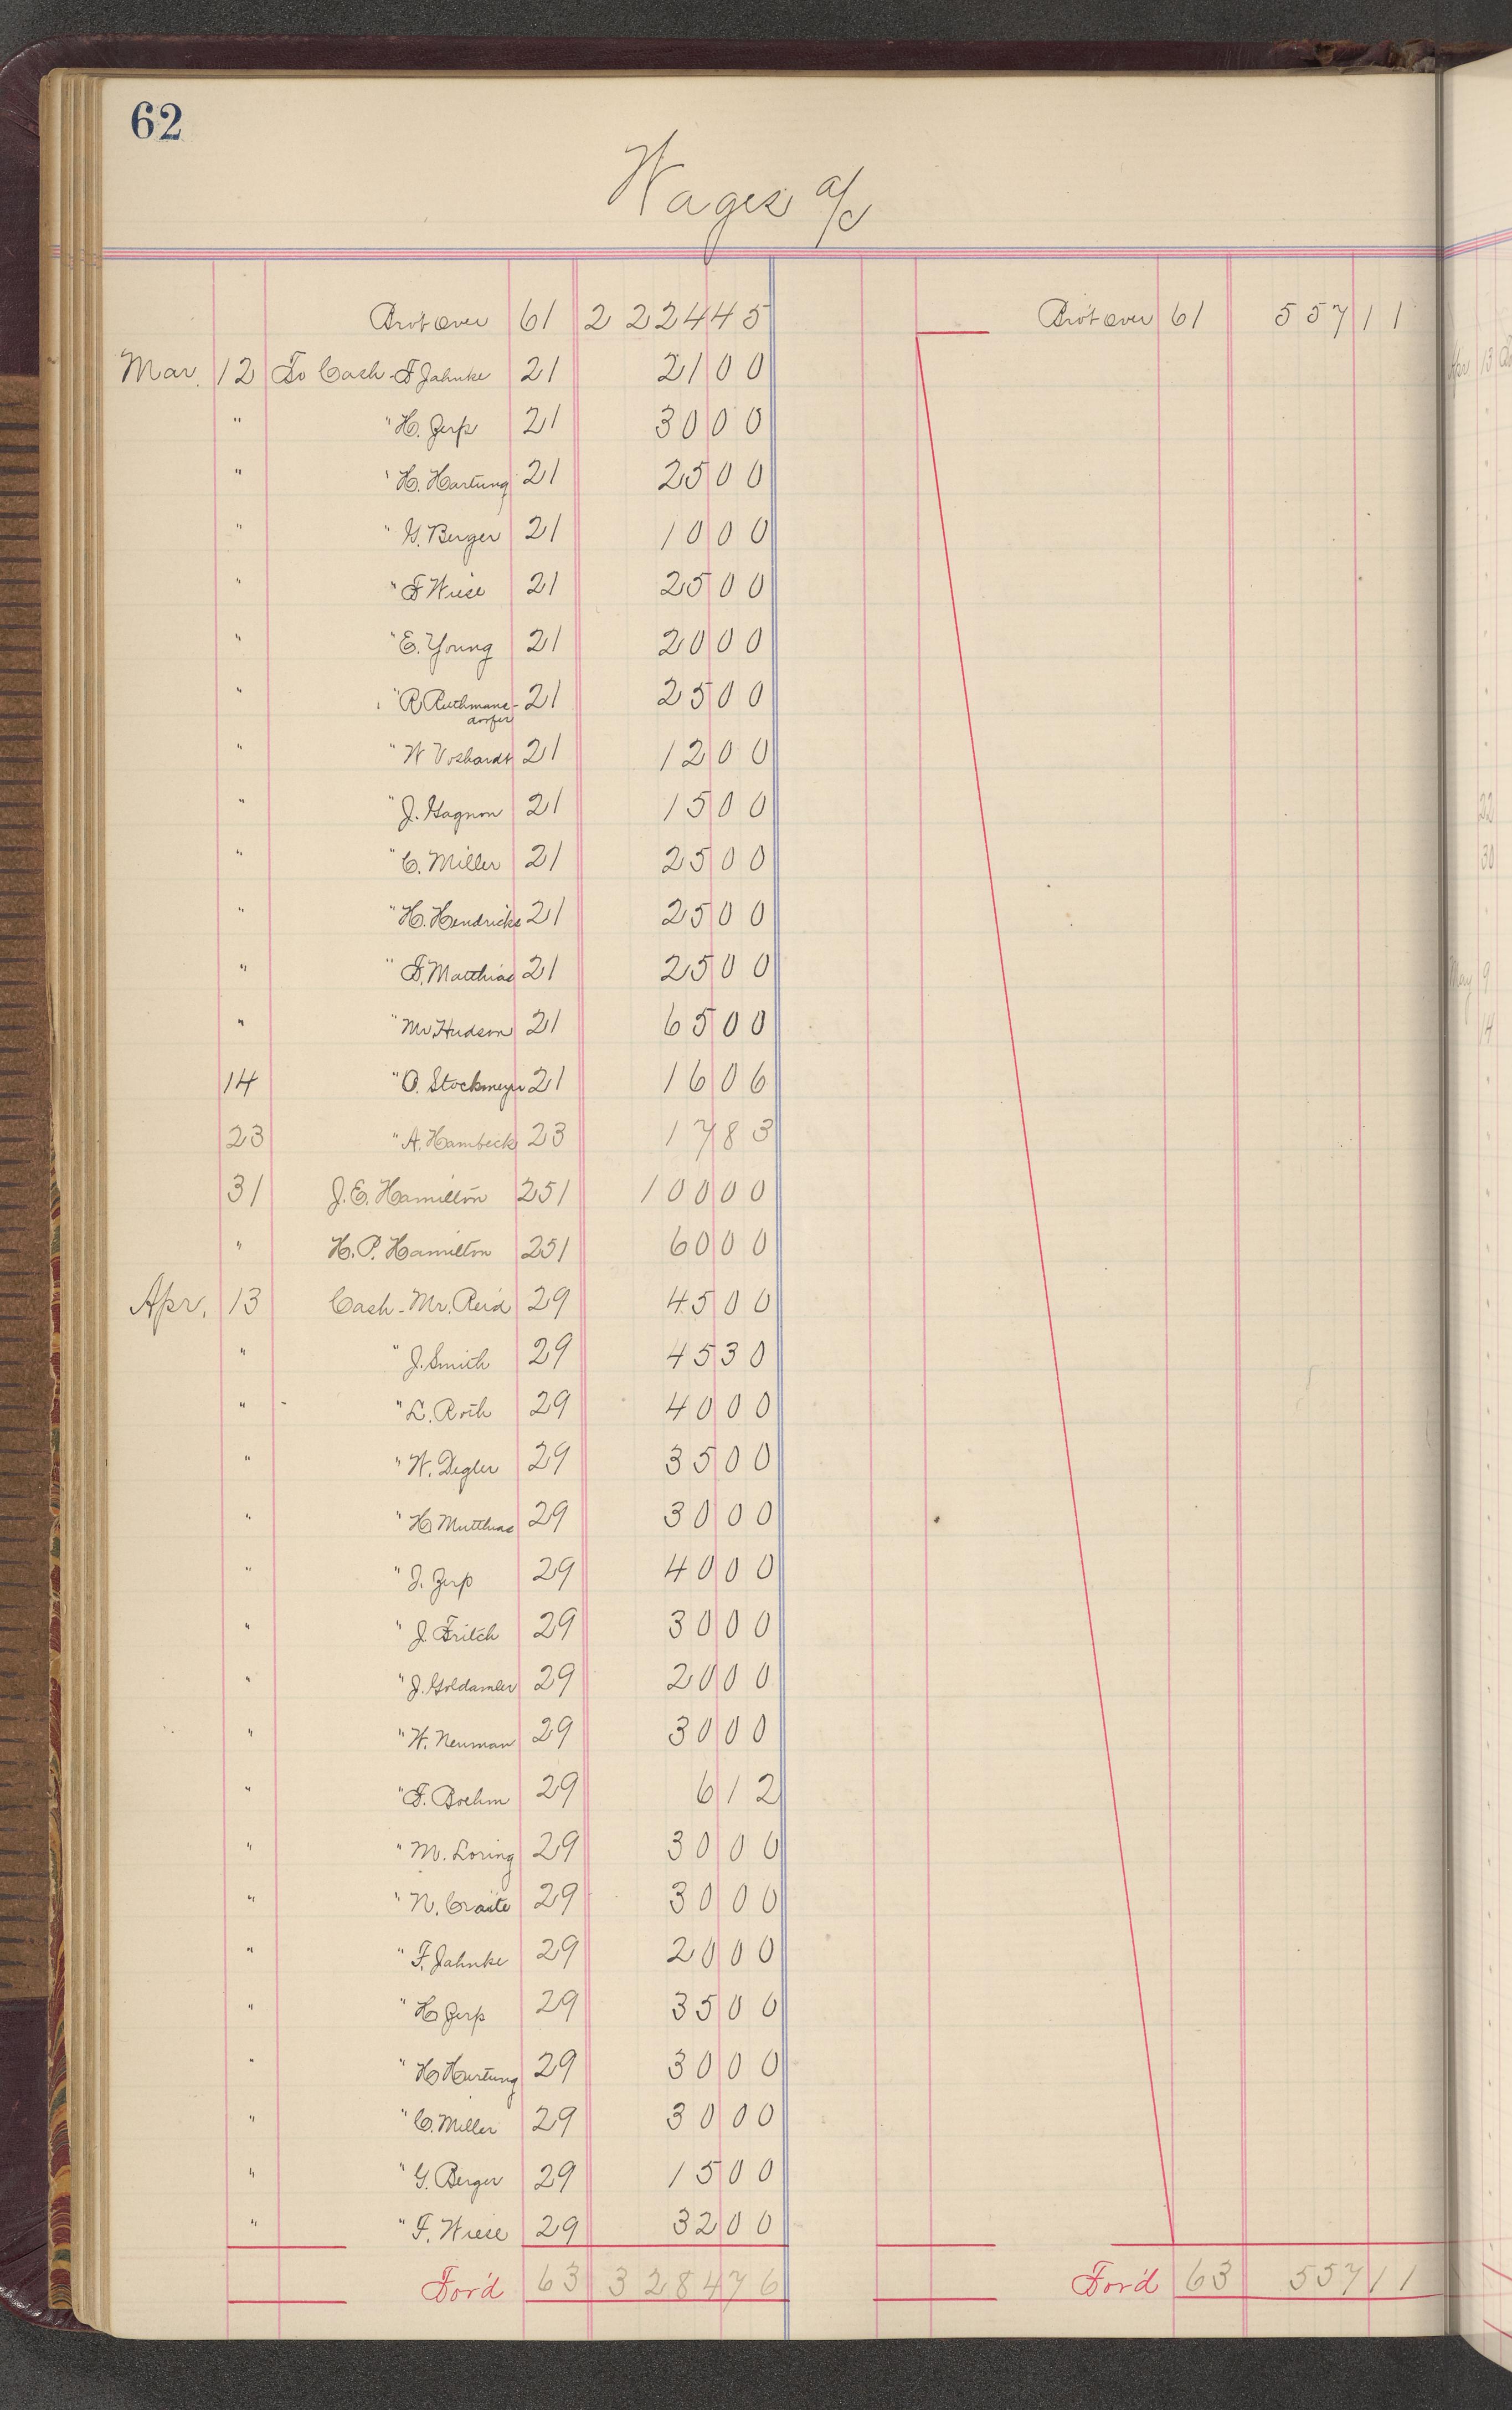 62
Wages a/c
Bro't over 61 2 224 45 Bro't over 61 557 11
Mar. 12 To Cash - F Jahnke 21 21 00
" " H. Zerp 21 30 00
" " H. Hartung 21 25 00
" " G. Berger 21 10 00
" " F Wiese 21 25 00
" " E. Young 21 20 00
" " R Ruthmans- 21 25 00
dorfer
" " W Voshardt 21 12 00
" " J. Gagnon 21 15 00
" " C. Miller 21 25 00
" " H. Hendricks 21 25 00
" " F. Matthias 21 25 00
" " Mr Hudson 21 65 00
14 " O. Stockmeyer 21 16 06
23 " A. Hambeck 23 17 83
31 J. E. Hamilton 251 100 00
" H. P. Hamilton 251 60 00
Apr. 13 Cash - Mr. Reid 29 45 00
" " J. Smith 29 45 30
" " L. Roth 29 40 00
" " W. Degler 29 35 00
" " H Matthias 29 30 00
" " J. Zerp 29 40 00
" " J. Fritch 29 30 00
" " J. Goldamler 29 20 00
" " W. Neuman 29 30 00
" " F. Boehm 29 6 12
" " M. Loring 29 30 00
" " N. Craite 29 30 00
" " F. Jahnke 29 20 00
" " H Zerp 29 35 00
" " H Hartung 29 30 00
" " C. Miller 29 30 00
" " G. Berger 29 15 00
" " F. Wiese 29 32 00
For'd 63 3 284 76 For'd 63 557 11